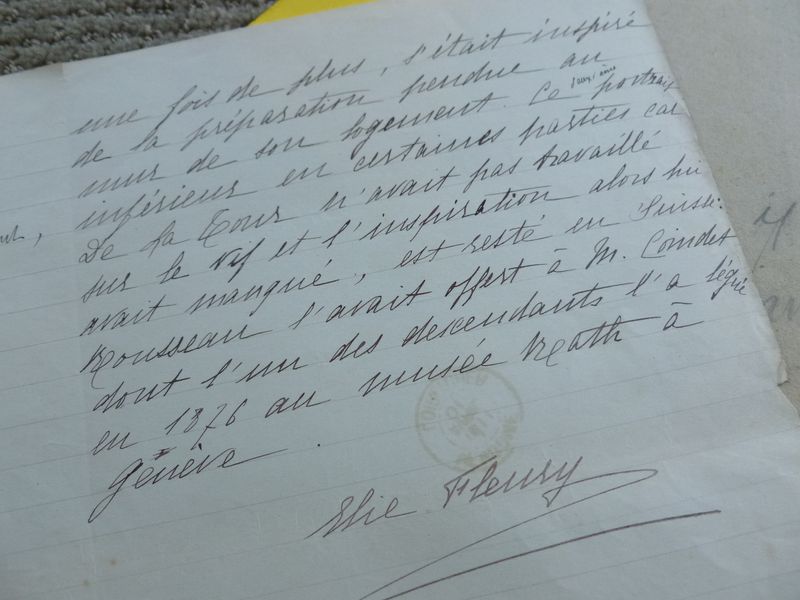 une fois de plus, s'était inspiré
de la préparation pendue au
mur de son logement. Ce portrait
inférieur en certaines parties car
De La Tour n'avait pas travaillé
sur le vif et l'inspiration alors lui
avait manqué, est resté en Suisse.
Rousseau l'avait offert à M. Coindet
dont l'un des descendants l'a légué
en 1876 au musée Rath à
Genève.
Elie Fleury